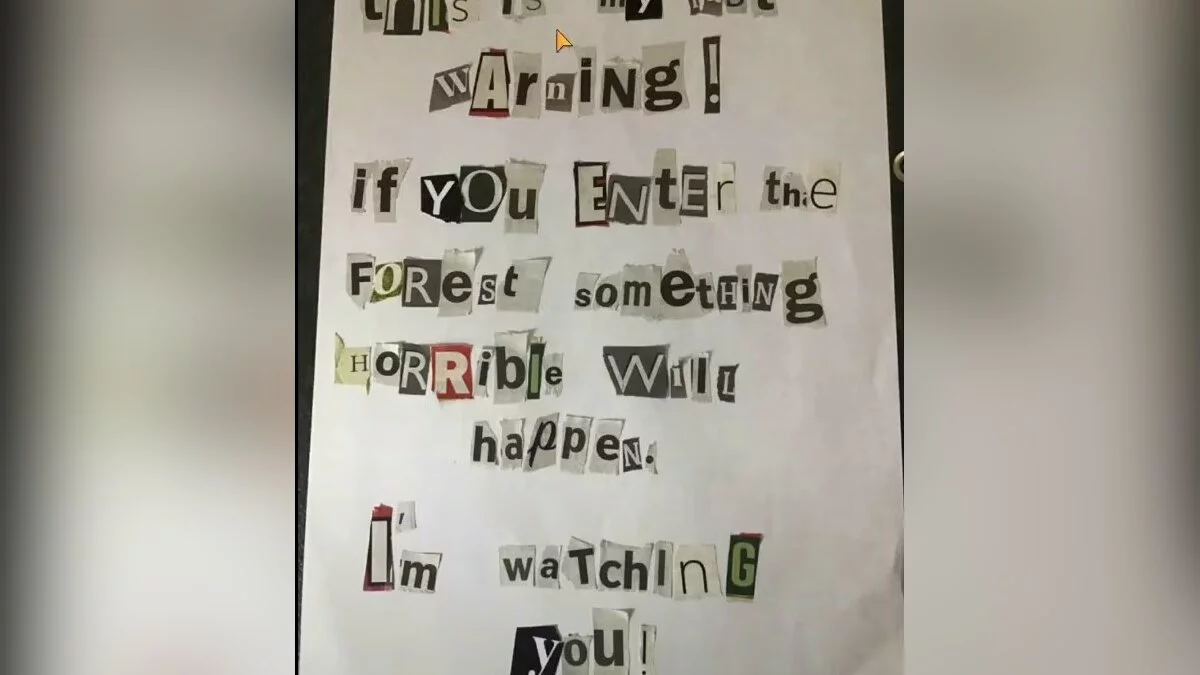 this is my last
wArniNg!
if YOu ENtEr the
FOResT sometHiNg
HORRible Will
happeN.
I'm waTchInG
you!